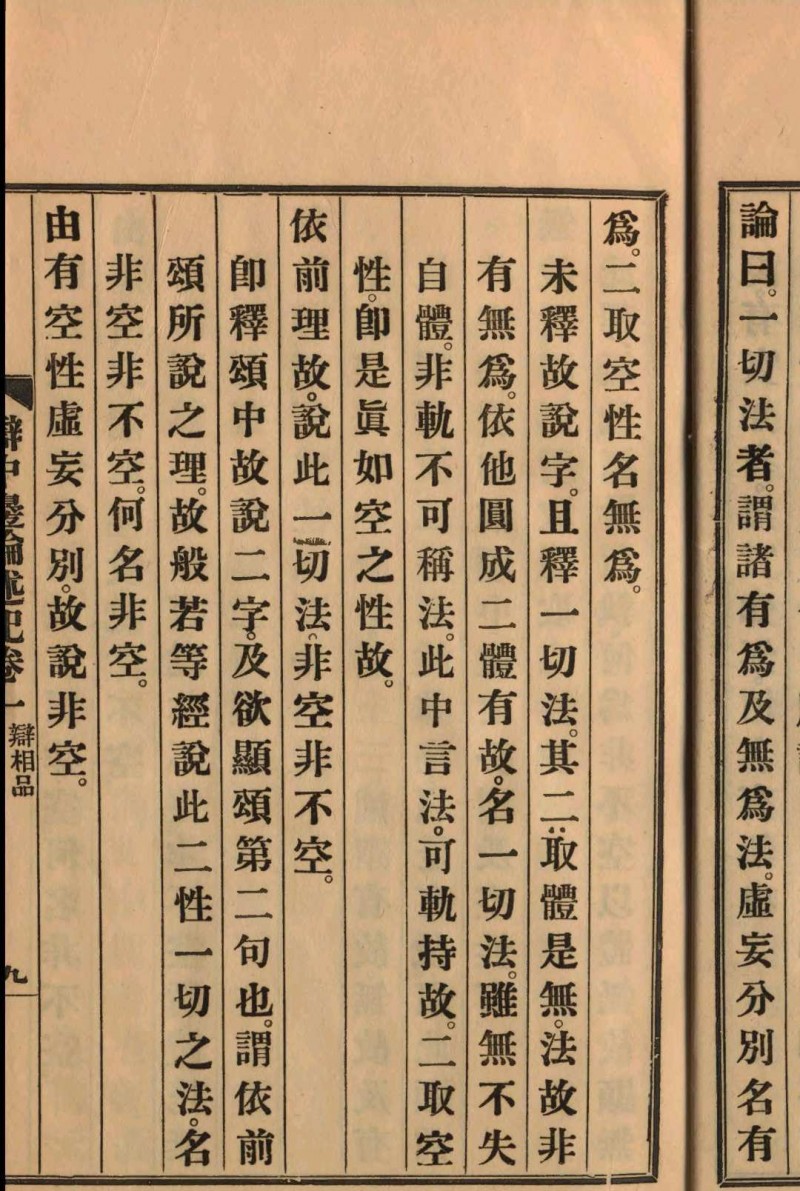 論曰。一切法者。謂諸有爲及無爲法。虛妄分別名有
爲。二取空性名無爲。
未釋故說字。且釋一切法。其二取體是無。法故非
有無爲。依他圓成二體有故。名一切法。雖無不失
自體。非軌不可稱法。此中言法。可軌持故。二取空
性。卽是眞如空之性故。
依前理故。說此一切法。非空非不空。
卽釋頌中故說二字。及欲顯頌第二句也。謂依前
頌所說之理。故般若等經說此二性一切之法。名
非空非不空。何名非空。
由有空性虛妄分別。故說非空。
辯中邊論述記卷一 辯相品 九